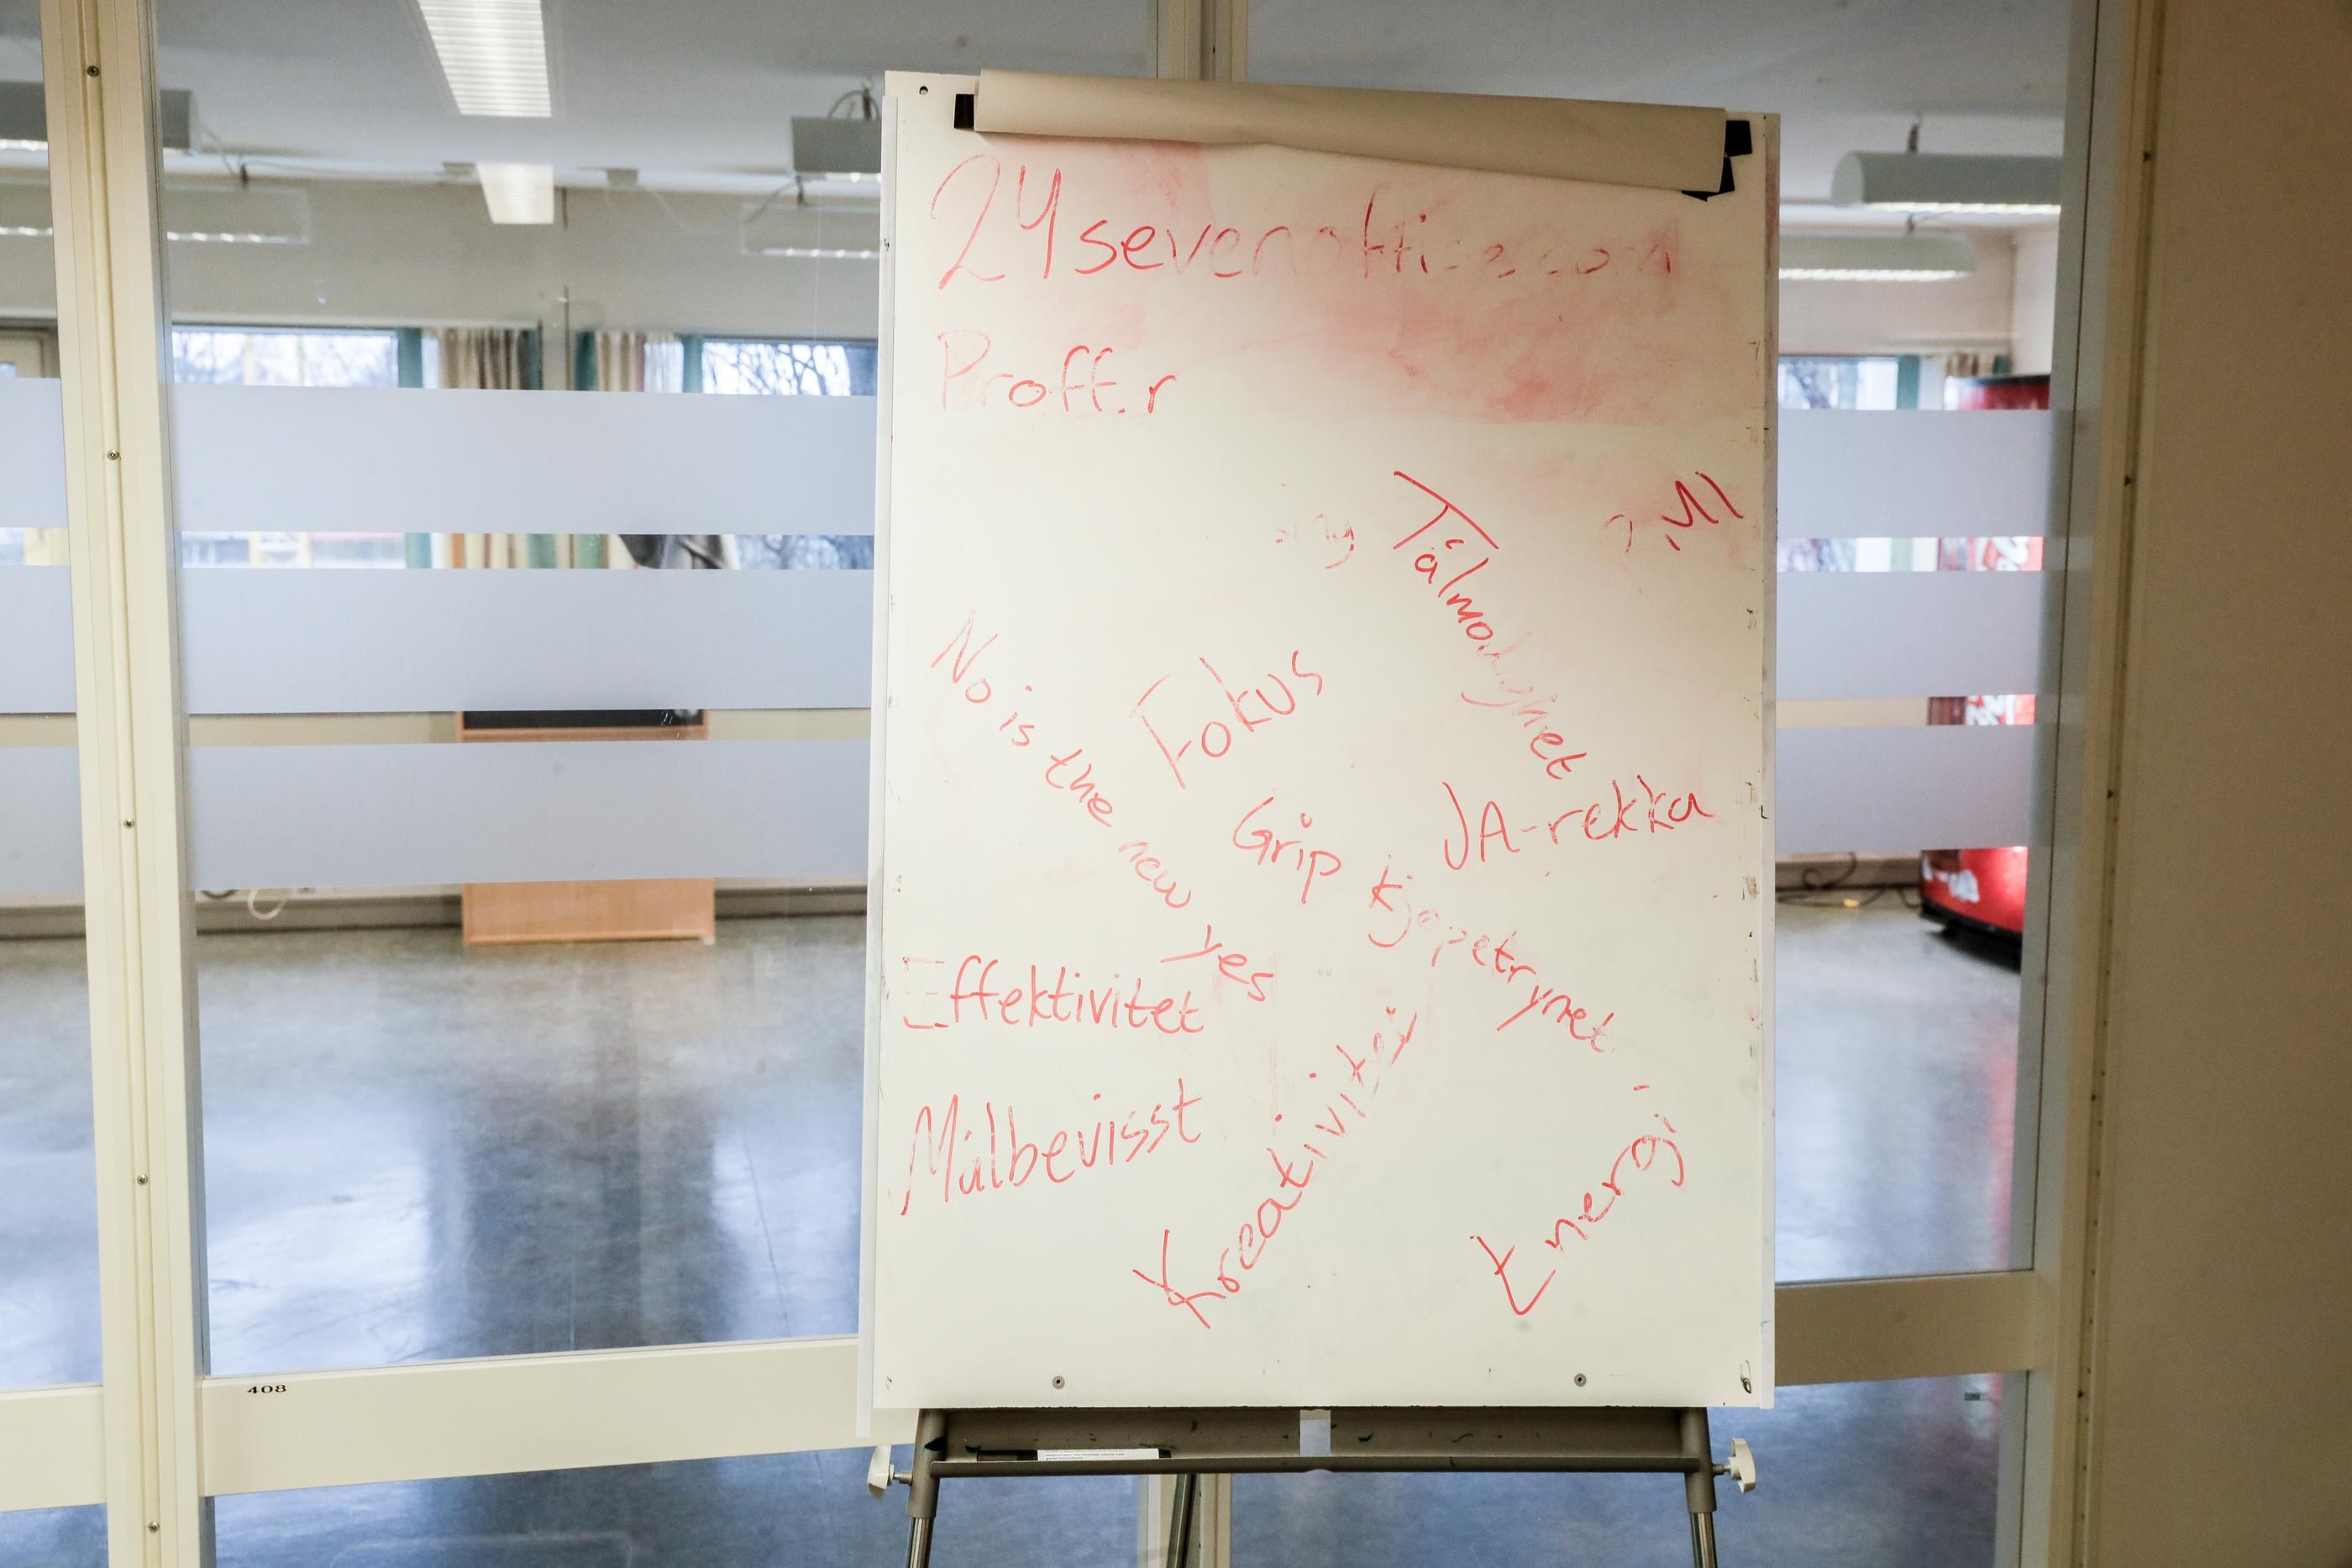 24sevenoffice.com
Proff.r
Tålmodighet
Fokus
No is the new yes
JA-rekka
Grip kjøpetrynet
Effektivitet
Målbevisst
Kreativitet
Energi
408